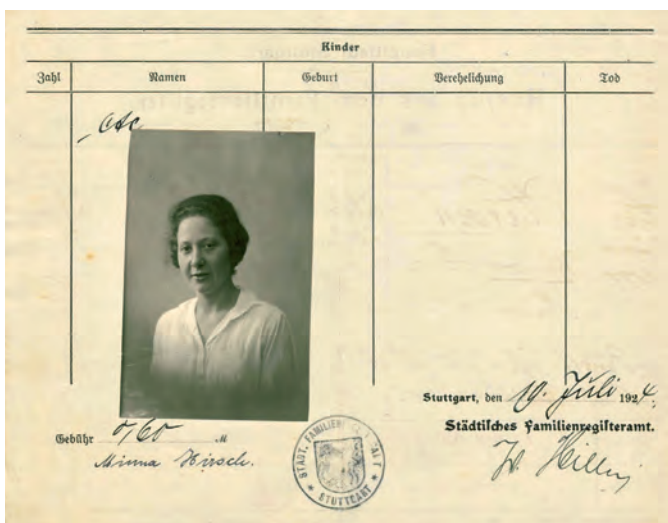 Kinder
Zahl Namen Geburt Verehelichung Tod
Stuttgart, den 19. Juli 1924.
Städtisches Familienregisteramt.
Gebühr 0,60 M
Minna Hirsch.
STÄDT. FAMILIEN
STUTTGART